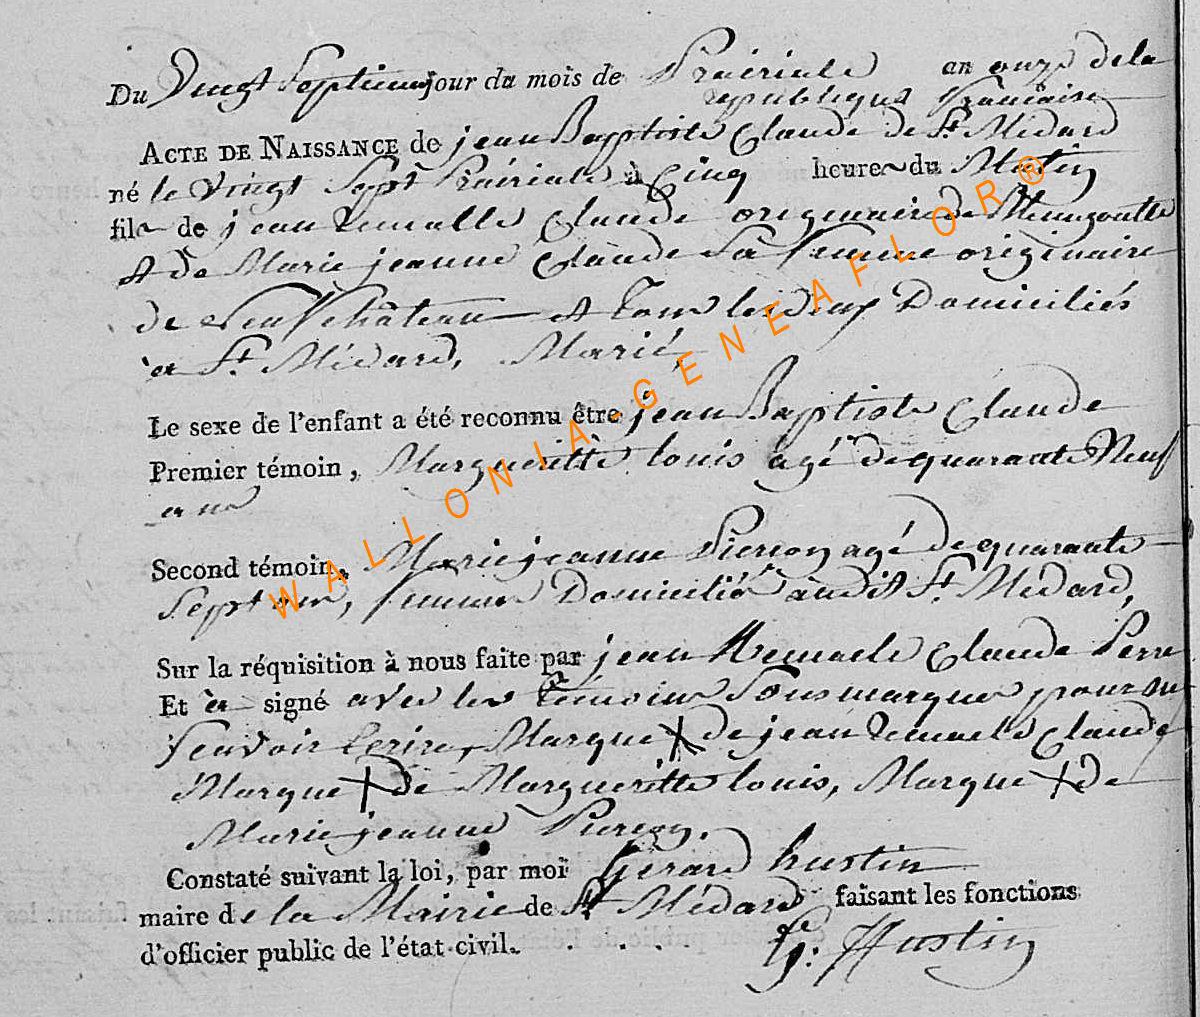 Du Vingt Septieme jour du mois de Prairiale an onze de la
republique francaise
ACTE DE NAISSANCE de jean Baptiste Claude de St. Médard
né le Vingt Sept Prairiale à Cinq heure du Matin
fils de jean Claude originaire de
& de Marie jeanne Claude Sa femme originaire
de Neufchâteau & tous les deux Domiciliés
à St. Médard, Marié,
Le sexe de l'enfant a été reconnu être jean Baptiste Claude
Premier témoin, Margueritte louis agé de quarante Neuf
ans
Second témoin, Marie jeanne Pierson agé de quarante
Sept ans, femmes Domicilié audit St. Médard,
Sur la réquisition à nous faite par jean Claude Perre
Et à signé avec les témoins Sous marques pour ne
Scavoir Ecrire, Marque X de jean Claude
Marque X de Margueritte louis, Marque X de
Marie jeanne Pierson.
Constaté suivant la loi, par moi Gerard hustin
maire de la Mairie de St. Médard faisant les fonctions
d'officier public de l'état civil. . . .
G: Hustin
WALLONIA-GENEAFLOR®